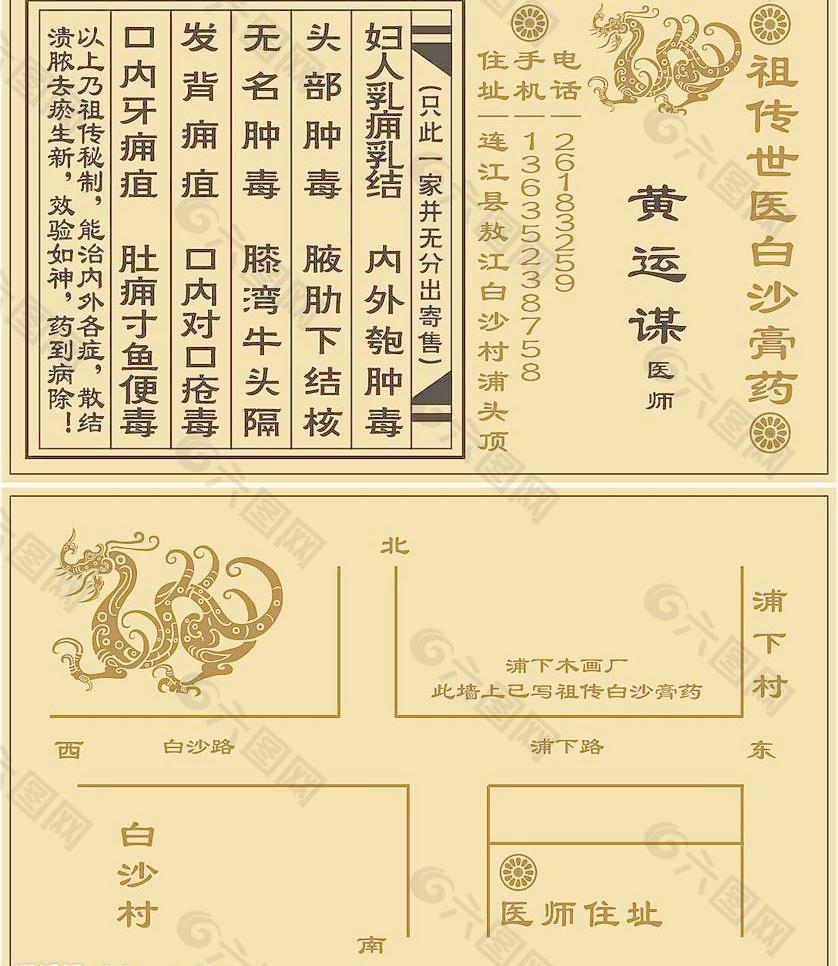 祖传世医白沙膏药
黄运谋医师
电话—26183259
手机—13635238758
住址—连江县敖江白沙村浦头顶
(只此一家并无分出寄售)
妇人乳痈乳结 内外匏肿毒
头部肿毒 腋肋下结核
无名肿毒 膝湾牛头隔
发背痈疽 口内对口疮毒
口内牙痈疽 肚痈寸鱼便毒
以上乃祖传秘制，能治内外各症，散结
溃脓去瘀生新，效验如神，药到病除！
北
浦下村
浦下木画厂
此墙上已写祖传白沙膏药
西
白沙路
浦下路
东
白沙村
医师住址
南
六图网